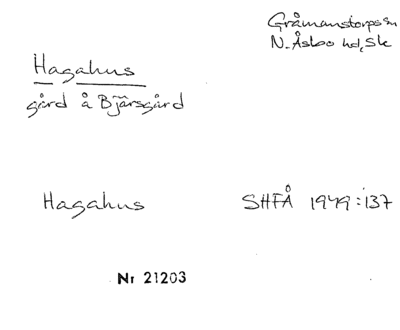 Gråmanstorps sn
N. Åsbo hd, Sk
Hagahus
gård å Bjärsgård
Hagahus SHFÅ 1949:137
Nr 21203